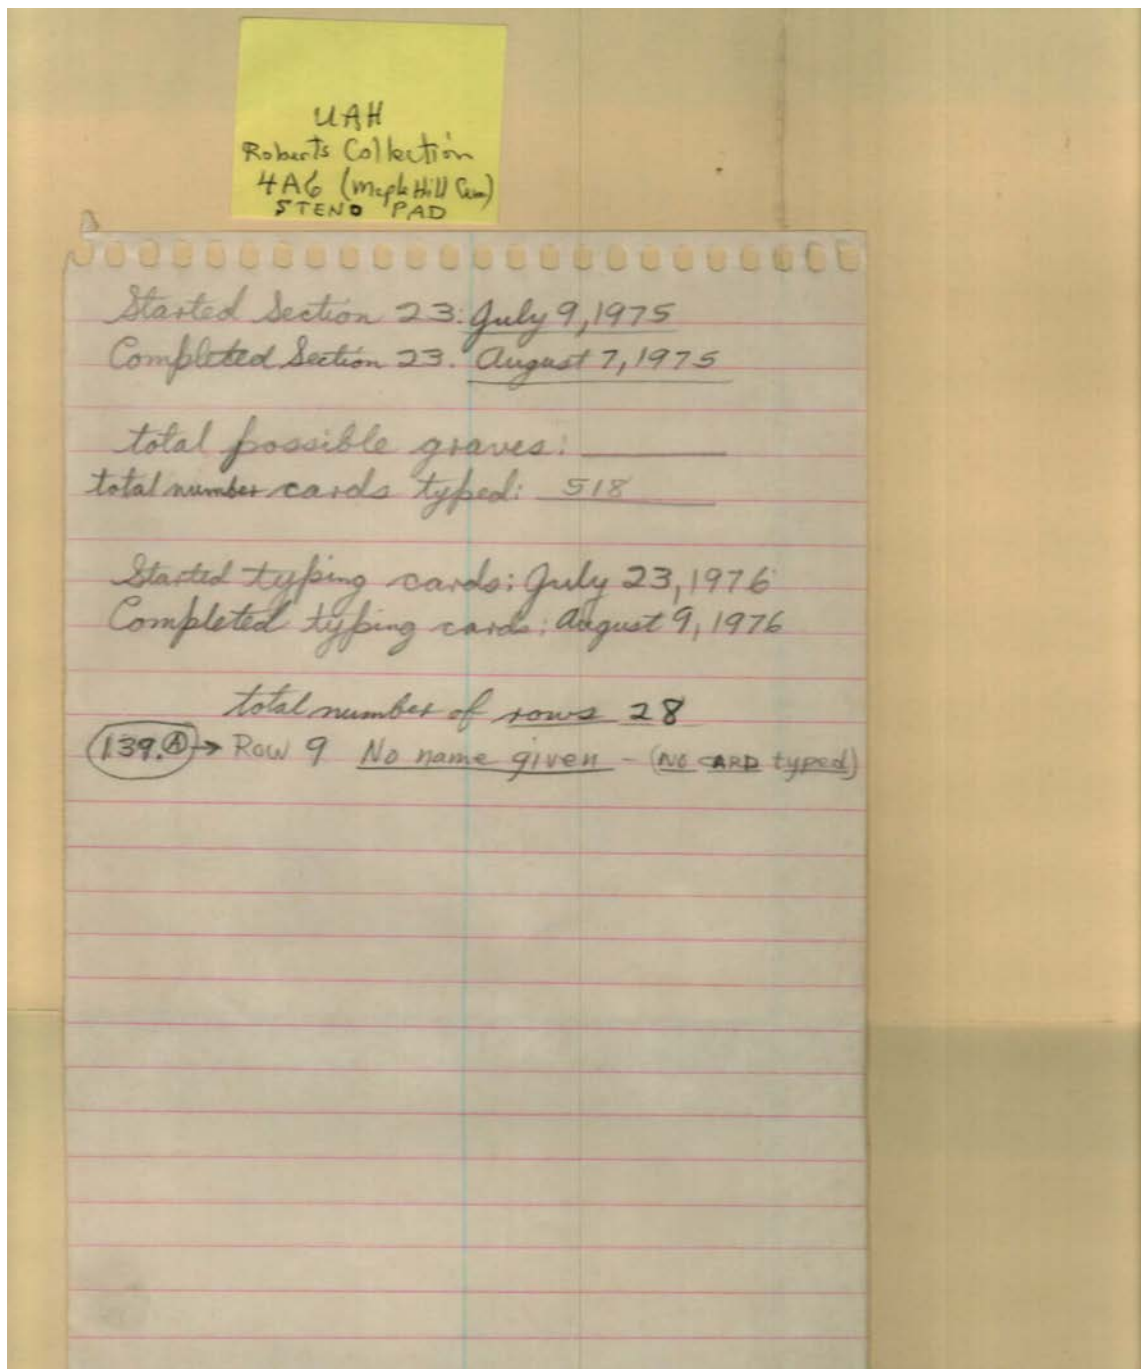 UAH
Roberts Collection
4A6 (Maple Hill Cem)
STENO PAD
Started Section 23: July 9, 1975
Completed Section 23. August 7, 1975
total possible graves: ______
total number cards typed: 518
Started typing cards: July 23, 1976
Completed typing cards: August 9, 1976
total number of rows 28
139.Ⓐ → Row 9 No name given - (NO CARD typed)